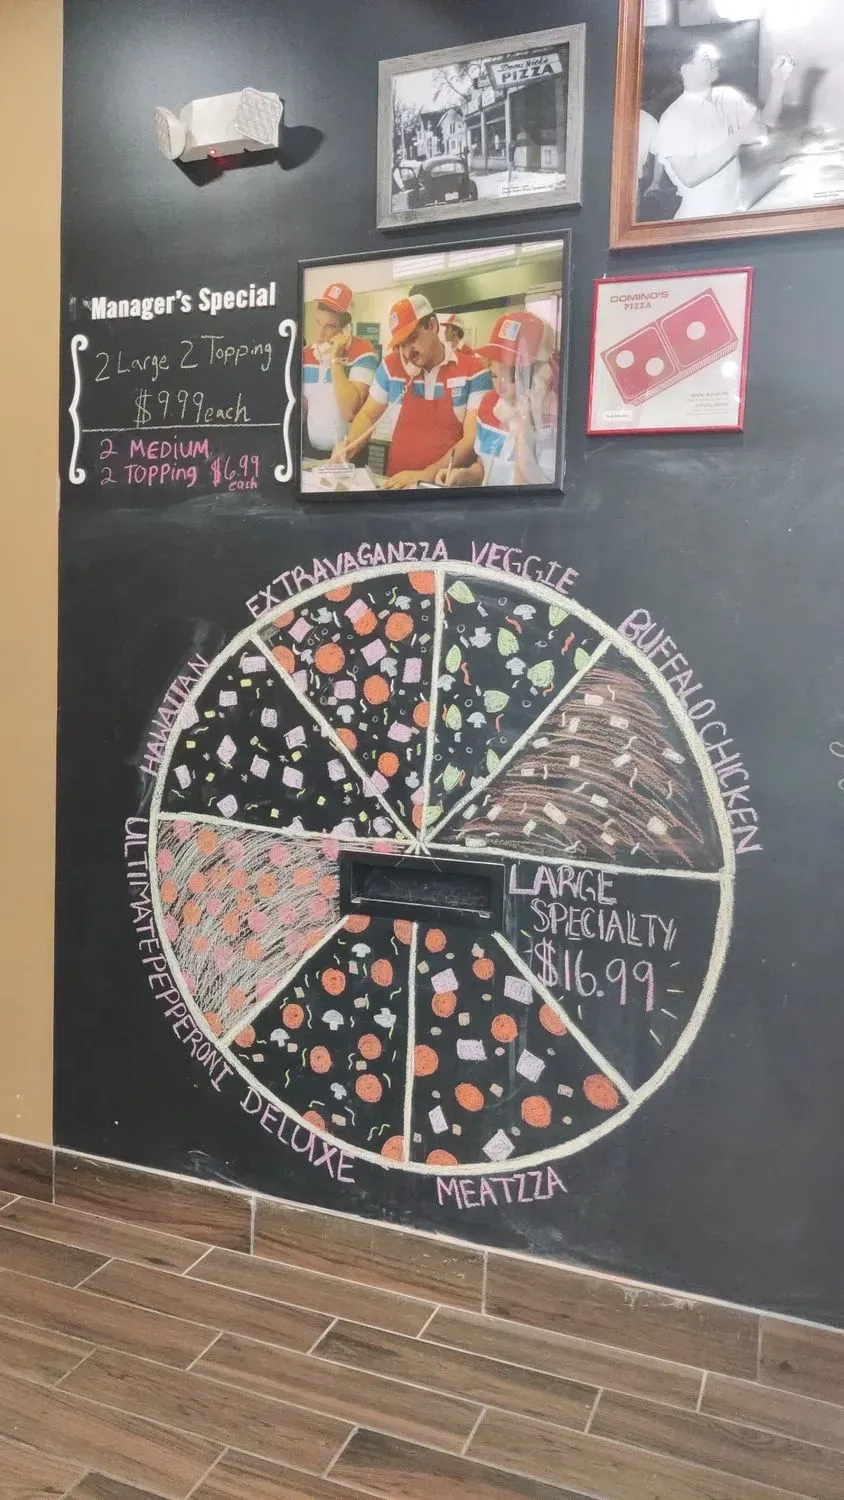 DomiNick's
PIZZA
Manager's Special
2 Large 2 Topping
$9.99 each
2 MEDIUM
2 TOPPING $6.99
each
DOMINO'S
PIZZA
EXTRAVAGANZZA
VEGGIE
BUFFALO CHICKEN
HAWAIIAN
ULTIMATE PEPPERONI
DELUXE
MEATZZA
LARGE
SPECIALTY
$16.99